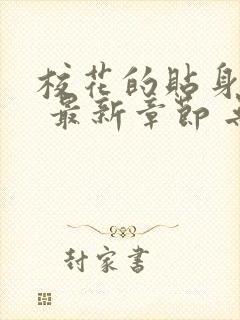 校花的贴身
最新章节
封家书